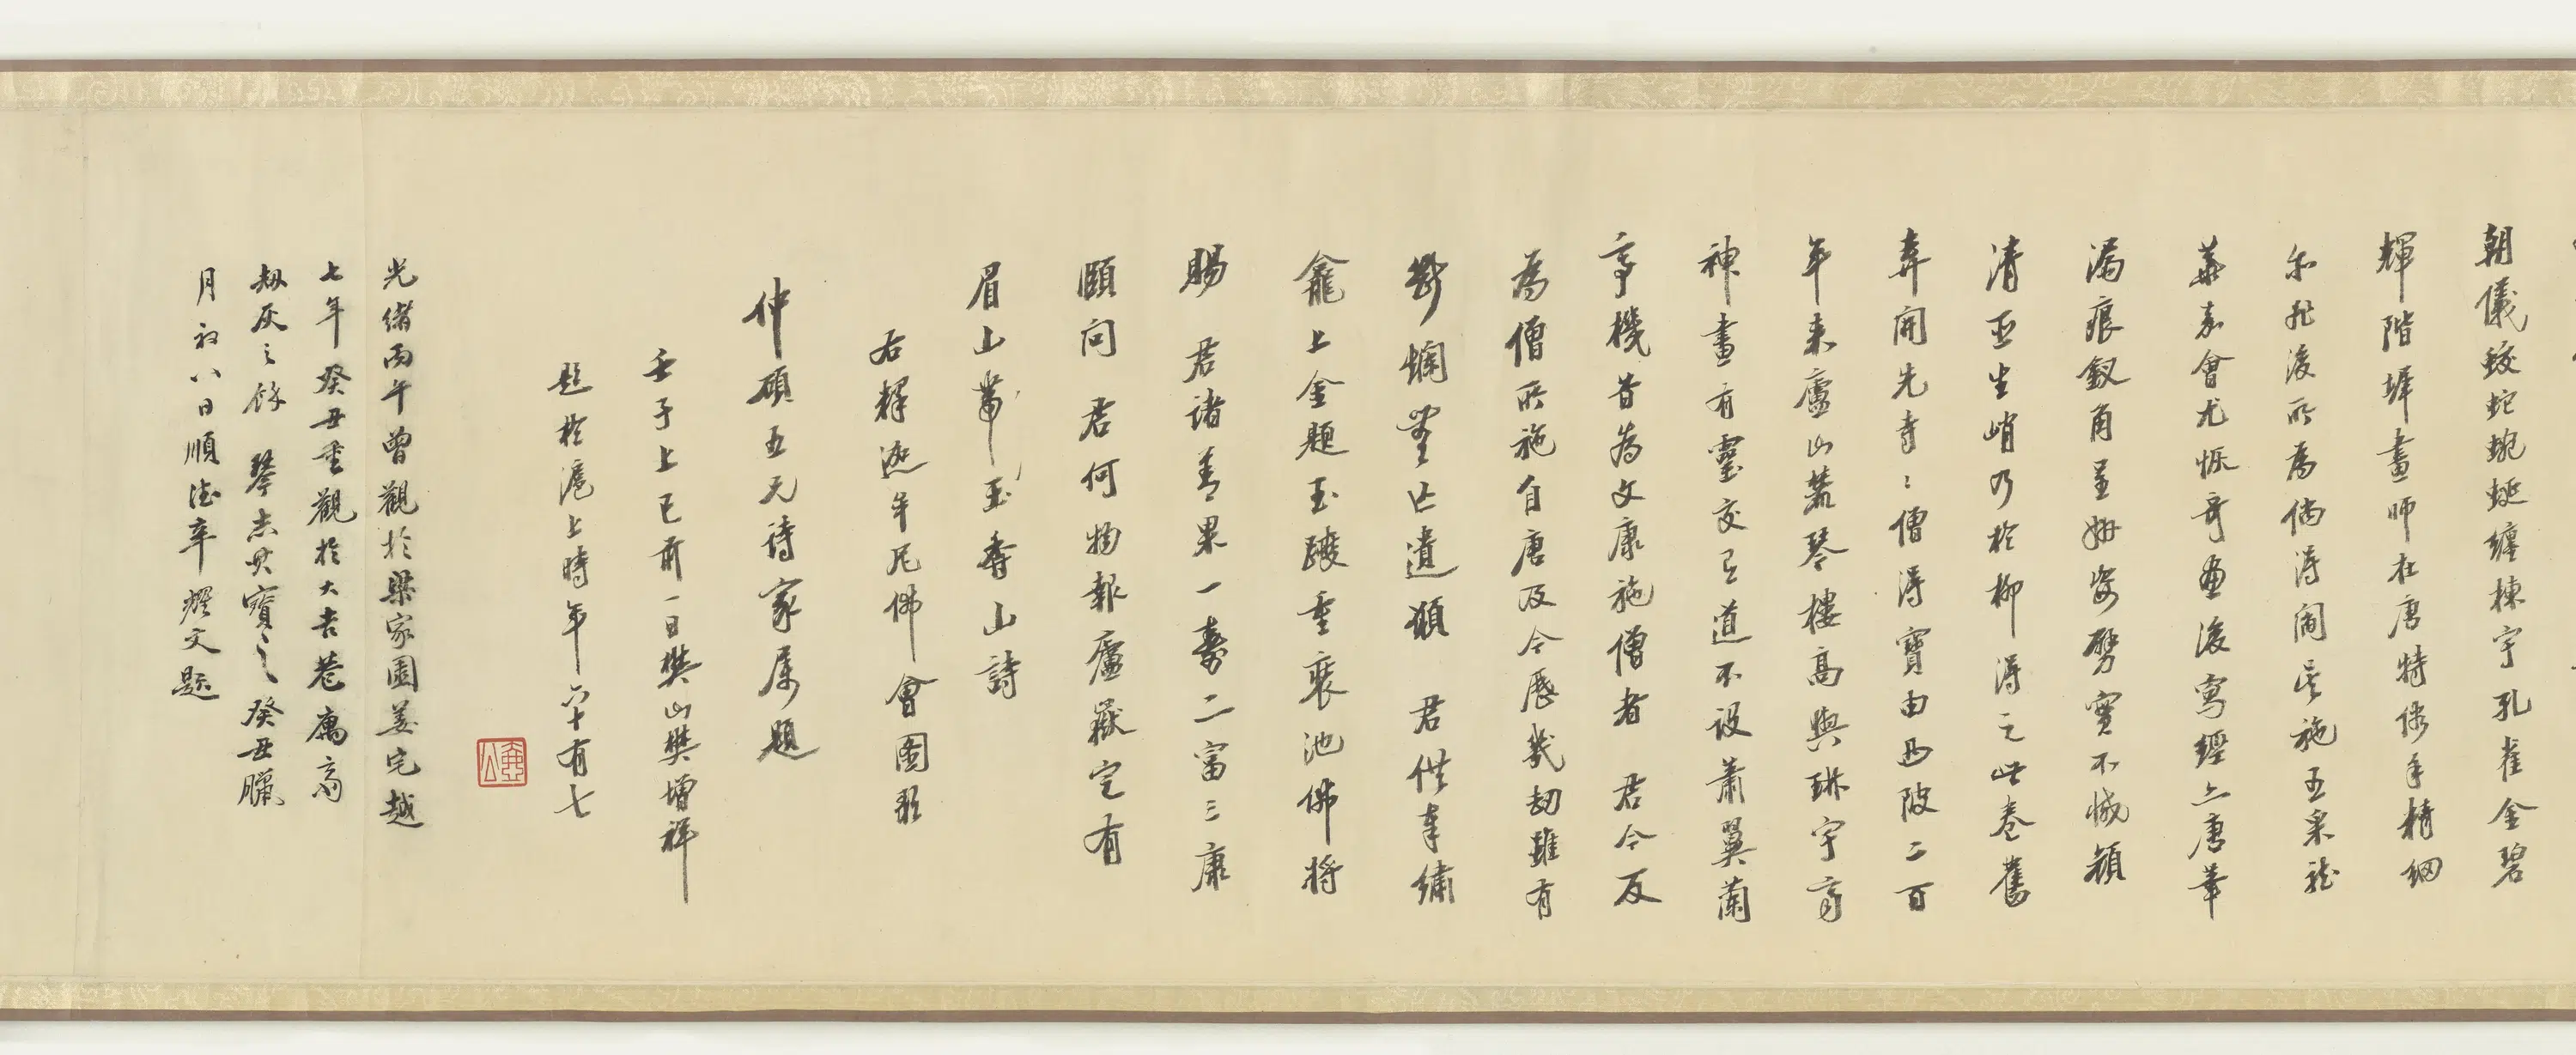 朝儀蛟蛇蜿蜒纏棟宇孔雀金碧
輝階墀畫師在唐特傍手精細
尔非後所為倘得閻吳施五采記
華嘉會尤恢奇畫後寫經亦唐筆
漏痕釵角呈妍姿劈實不憾穎
清亞生峭乃於柳得之此卷舊
弆開先寺寺僧得寶由過陂二百
年来廬山萬琴樓高與琳宇齊
神畫有靈交有道不設蕭翼蘭
亭機昔為文康施僧者君今反
為僧所施自唐及今歷幾劫雖有
斷爛無亡遺願君供奉繡
龕上金題玉躞重裝池佛將
賜君諸善果一壽二富三康
頤問君何物報廬嶽定有
眉山帶玉香山詩
右釋迦牟尼佛會圖歌
仲碩五兄詩家属題
壬子上巳前一日樊山樊增祥
題於滬上時年六十有七
光緒丙午曾觀於梁家園姜宅越
七年癸丑重觀於大吉巷寓齋
劫灰之餘琴志其寶之癸丑臘
月初八日順德辛耀文題
樊公